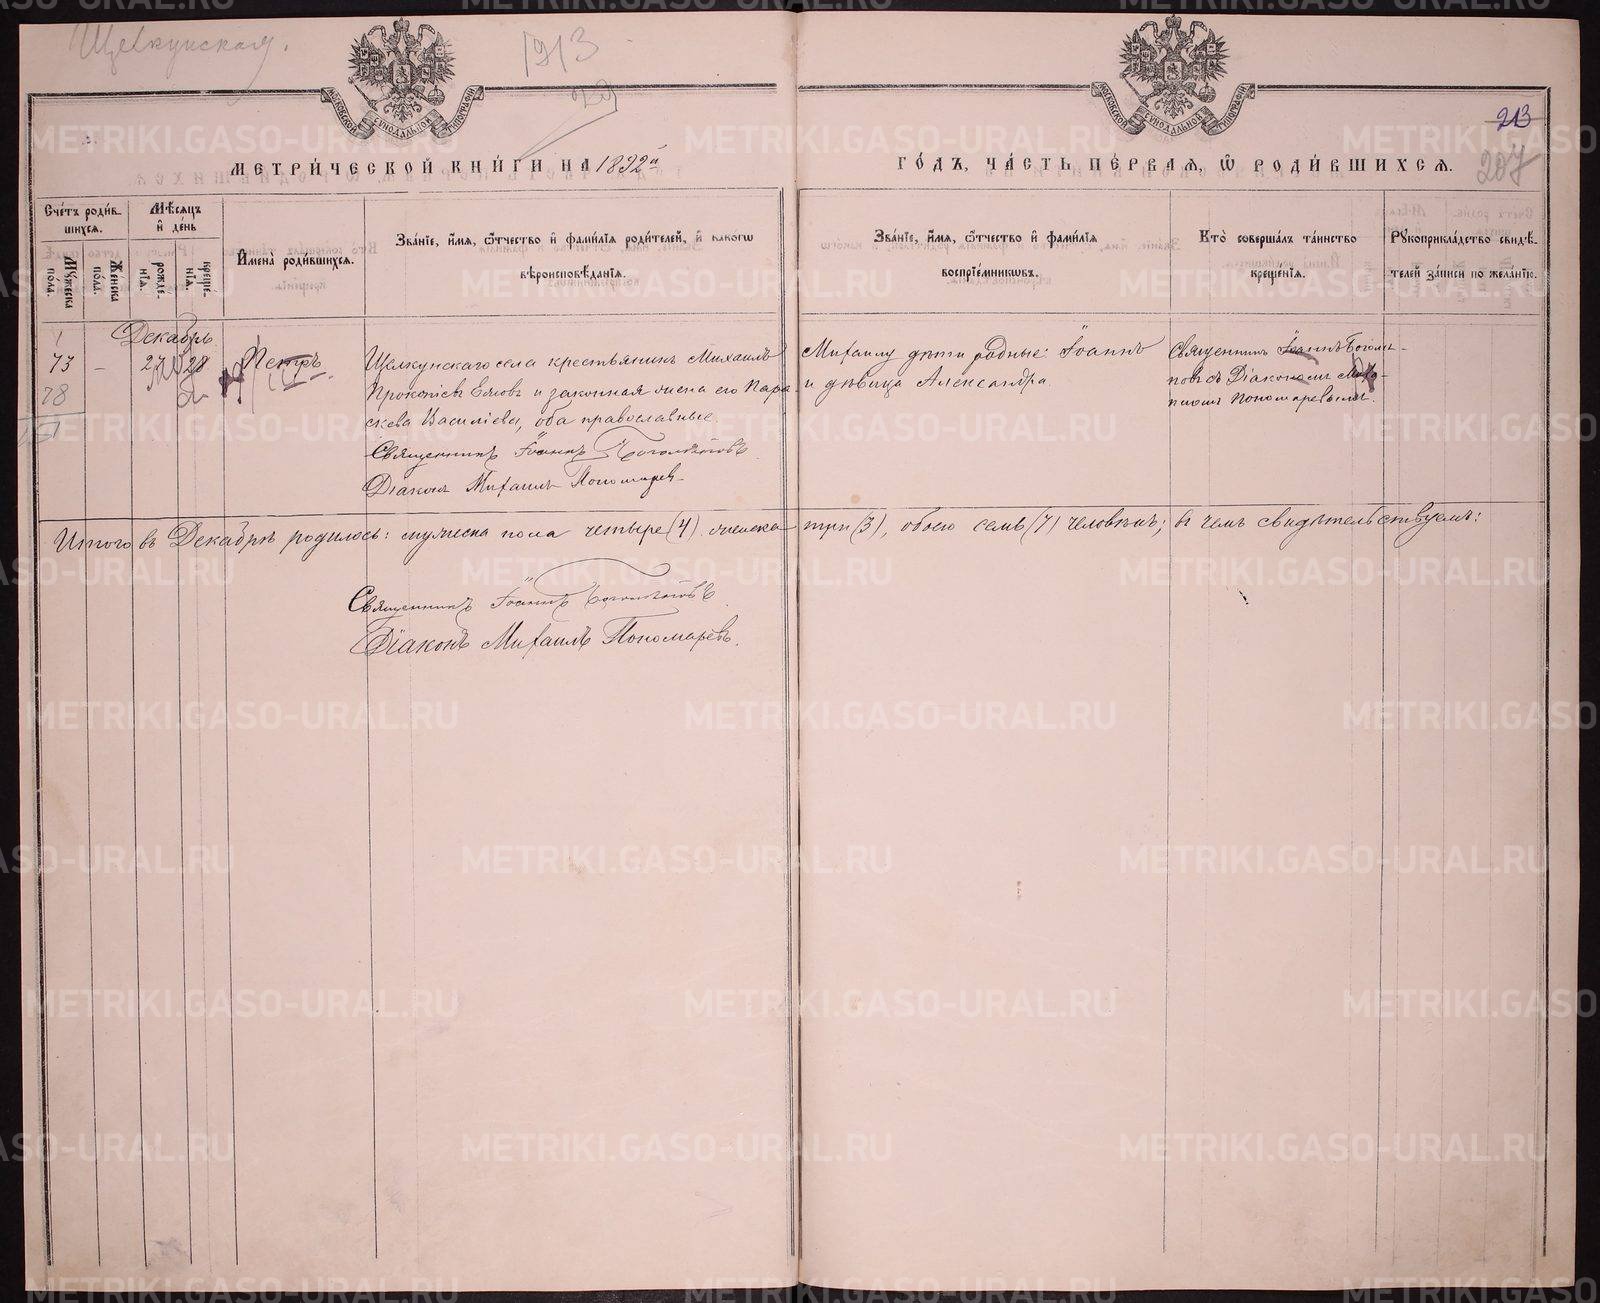 Щелкунская.
1913
МОСКОВСКОЙ СУНОДАЛЬНОЙ ТИПОГРАФІИ
МОСКОВСКОЙ СУНОДАЛЬНОЙ ТИПОГРАФІИ
213
207
МЕТРИ́ЧЕСКОЙ КНИ́ГИ НА 1892й
ГО́ДЪ, ЧА́СТЬ ПЕ́РВАЯ, Ѡ҆ РОДИ́ВШИХСѦ.
Сче́тъ роди́в-
шихсѧ.
Мꙋ́жеска пола.
Же́нска пола.
Мѣ́сѧцъ
и҆ де́нь
рожде́-
нїѧ.
креще́-
нїѧ.
И҆мена̀ роди́вшихсѧ.
Зва́нїе, и҆́мѧ, ѻ҆́тчество и҆ фами́лїѧ роди́телей, и҆ како́гѡ
вѣроисповѣ́данїѧ.
Зва́нїе, и҆́мѧ, ѻ҆́тчество и҆ фами́лїѧ
воспрїе́мникѡвъ.
Кто̀ соверша́лъ та́инство
креще́нїѧ.
Рꙋкоприкла́дство свидѣ́-
телей за́писи по жела́нїю.
Декабрь
73 – 27 28 Петръ
78
Щелкунскаго села крестьянинъ Михаилъ
Прокопіевъ и законная жена его Пара-
скева Василіева, оба православные.
Священникъ Іоаннъ Боголѣповъ
Діаконъ Михаилъ Пономаревъ
Михаилу дѣти родные: Іоаннъ
и дѣвица Александра
Священникъ Іоаннъ Боголѣ-
повъ съ Діакономъ Миха-
иломъ Пономаревымъ.
Итого въ Декабрѣ родилось: мужеска пола четыре (4) женска три (3), обоего семь (7) человѣкъ; въ чемъ свидѣтельствуемъ:
Священникъ Іоаннъ Боголѣповъ
Діаконъ Михаилъ Пономаревъ.
METRIKI.GASO-URAL.RU